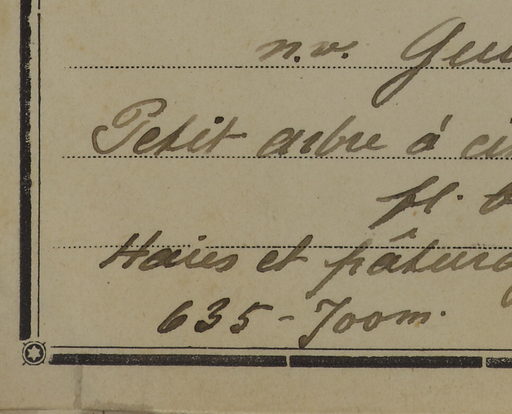 n.v. Gui
Petit arbre à ci
fl. b
Haies et pâturag
635-700m.